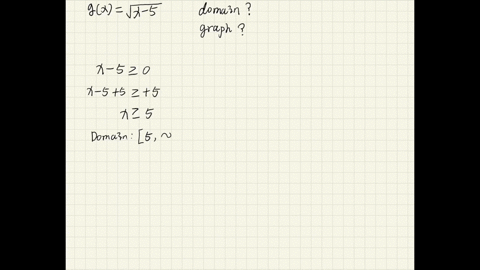 g(x) = √x-5 domain ?
graph ?
x-5 ≥ 0
x-5+5 ≥ +5
x ≥ 5
Domain: [5, ~